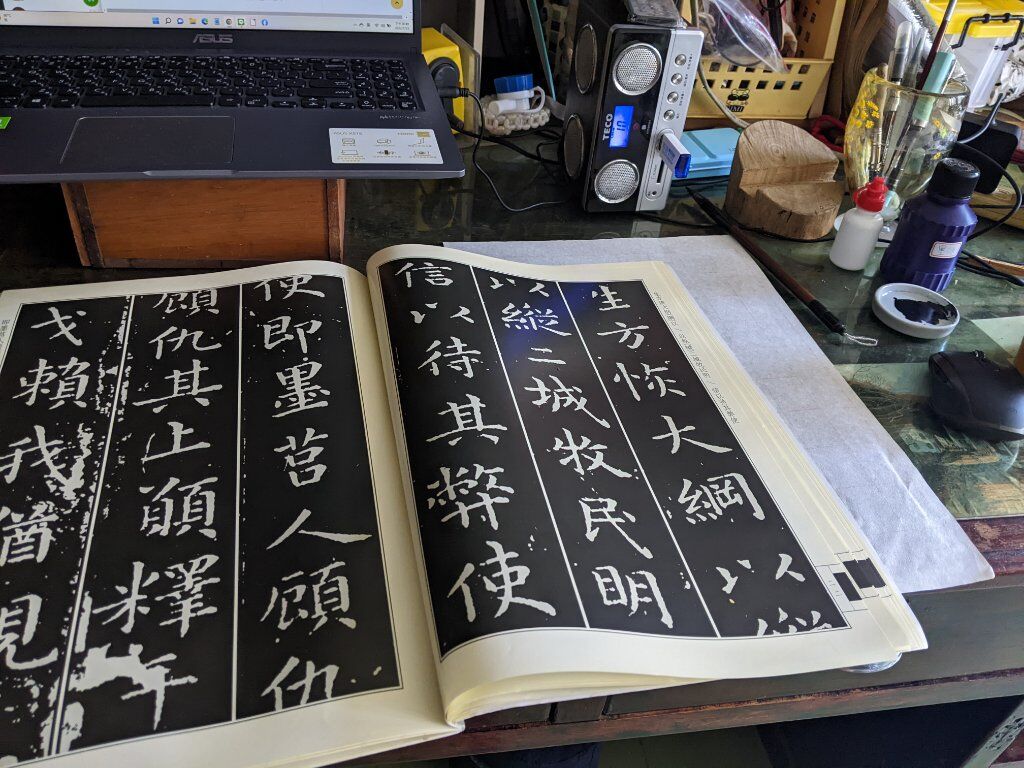 ASUS
TECO
生方恢大綱以縱
以縱二城牧民明
信以待其弊使
使即墨莒人顧仇
顧仇其上願釋干
戈賴我猶親